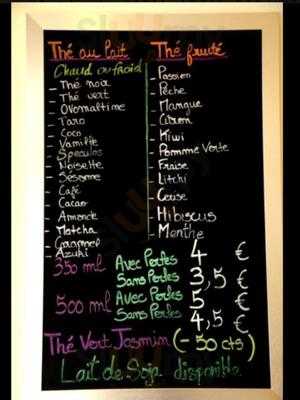 Thé au lait
Chaud ou froid
- Thé noir
- Thé vert
- Ovomaltine
- Taro
- Coco
- Vanille
- Speculos
- Noisette
- Sésame
- Café
- Cacao
- Amande
- Matcha
- Caramel
- Azuki
Thé fruité
- Passion
- Pêche
- Mangue
- Citron
- Kiwi
- Pomme Verte
- Fraise
- Litchi
- Cerise
- Hibiscus
- Menthe
350 ml Avec Perles 4 €
Sans Perles 3,5 €
500 ml Avec Perles 5 €
Sans Perles 4,5 €
Thé Vert Jasmin (- 50 cts)
Lait de Soja disponible